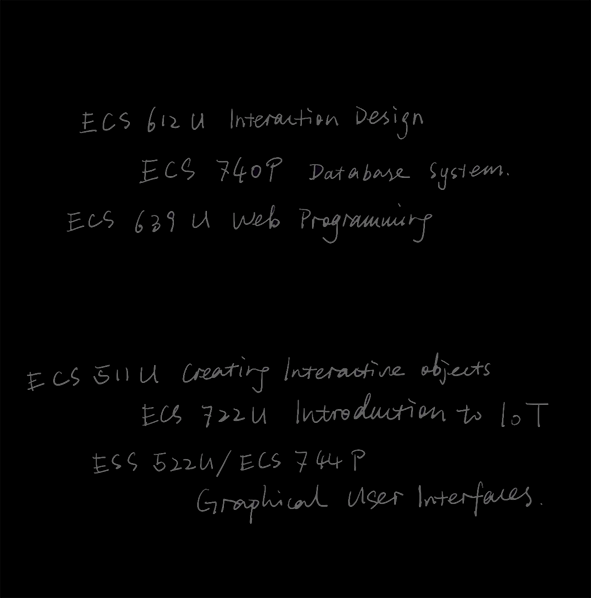 ECS 612 U Interaction Design
ECS 740P Database System.
ECS 639 U Web Programming
ECS 511 U Creating Interactive objects
ECS 722 U Introduction to IoT
ESS 522U/ECS 744P
Graphical User Interfaces.